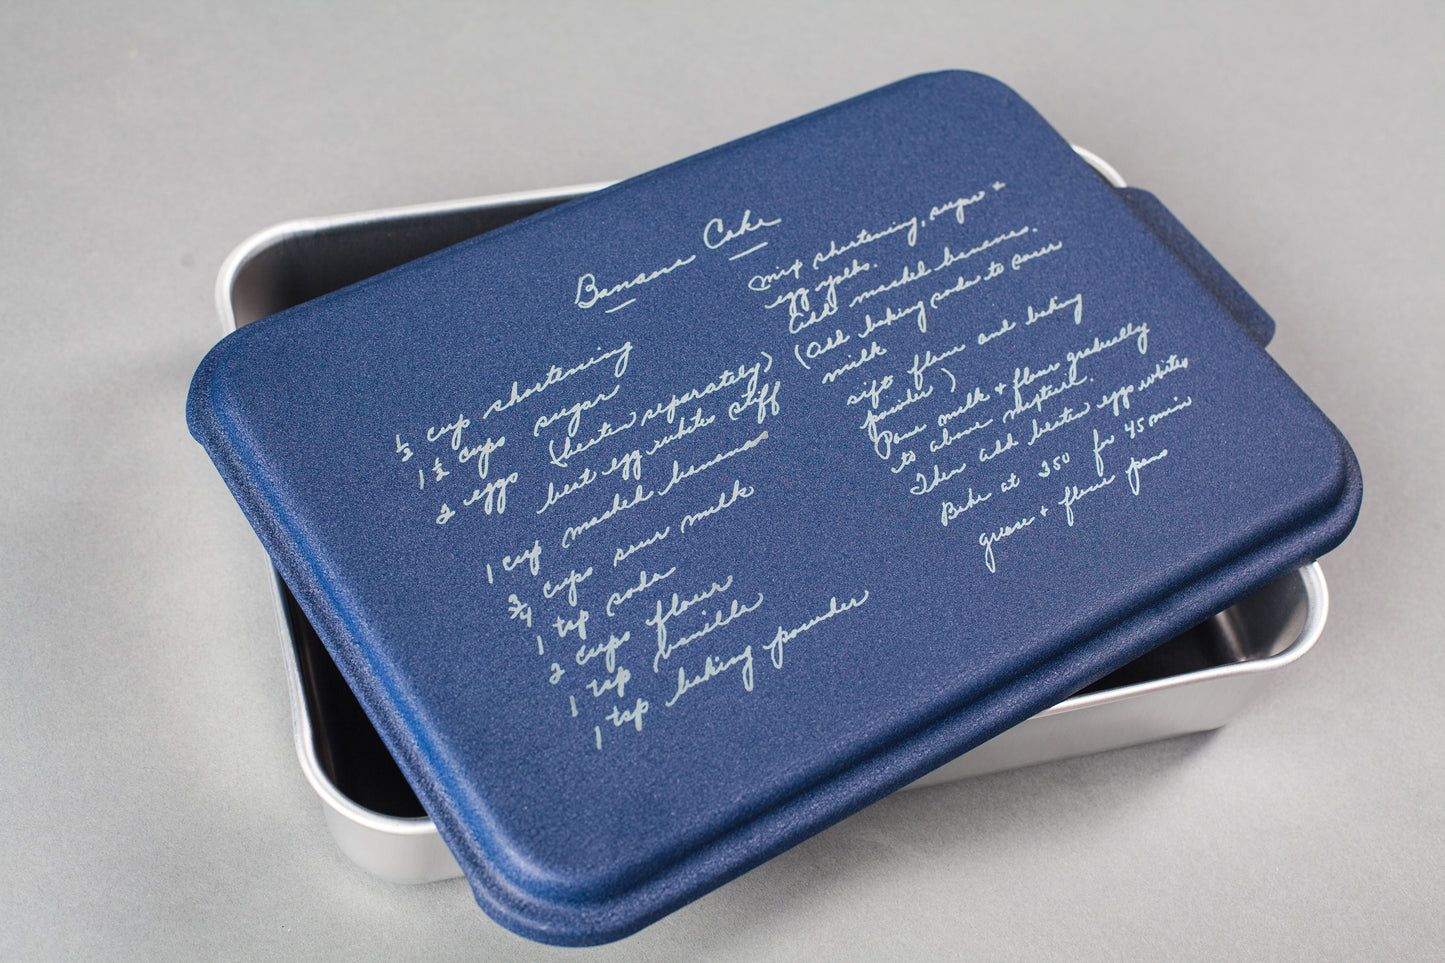 Banana Cake
1/2 cup shortening
1 1/2 cups sugar
2 eggs (beaten separately)
beat egg whites stiff
1 cup mashed banana
3/4 cups sour milk
1 tsp soda
2 cups flour
1 tsp vanilla
1 tsp baking powder
Mix shortening, sugar +
egg yolks.
Add mashed banana.
(Add baking soda to sour
milk
sift flour and baking
powder)
Pour milk + flour gradually
to above mixture.
Then add beaten egg whites
Bake at 350 for 45 min
grease + flour pans